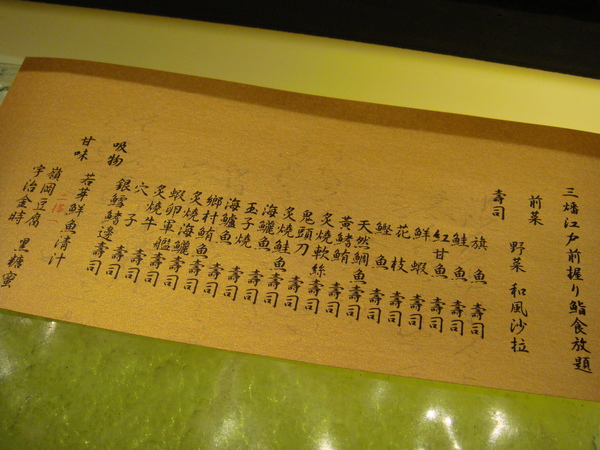 三燔江戶前握り鮨食放題
前菜 野菜 和風沙拉
壽司 旗魚壽司
鮭魚壽司
紅甘魚壽司
鮮蝦壽司
花枝壽司
鰹魚壽司
天然鯛魚壽司
黃鰭鮪壽司
炙燒軟絲壽司
鬼頭刀壽司
炙燒鮭魚壽司
海鱺魚壽司
玉子燒壽司
海鱸魚壽司
鄉村鮪魚壽司
炙燒海鱺壽司
蝦卵軍艦壽司
炙燒牛壽司
穴子壽司
銀鱈鰭邊壽司
吸物 若芽鮮魚清汁
甘味 嶺岡豆腐
二擇一
宇治金時 黑糖蜜